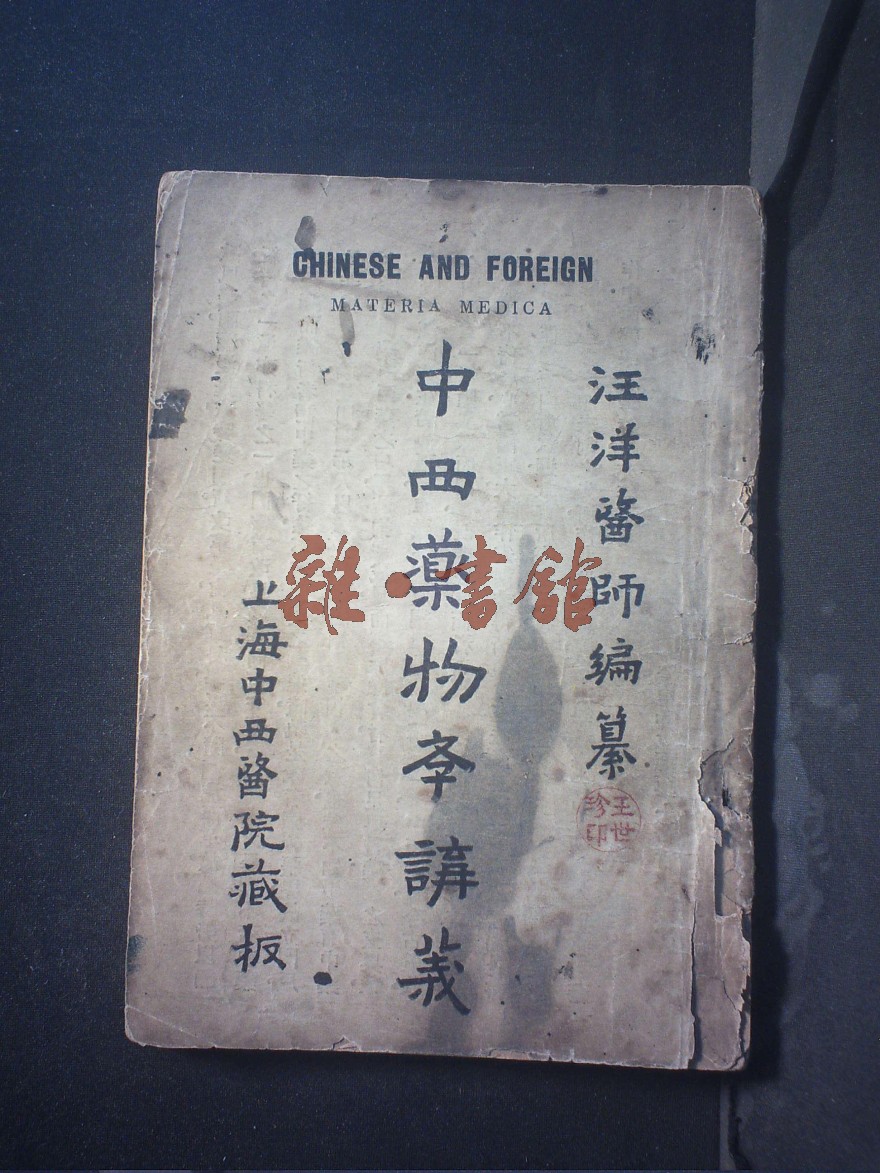 CHINESE AND FOREIGN
MATERIA MEDICA
汪洋醫師編纂
王世
珍印
中西薬物斈講義
上海中西醫院藏板
雜·書館